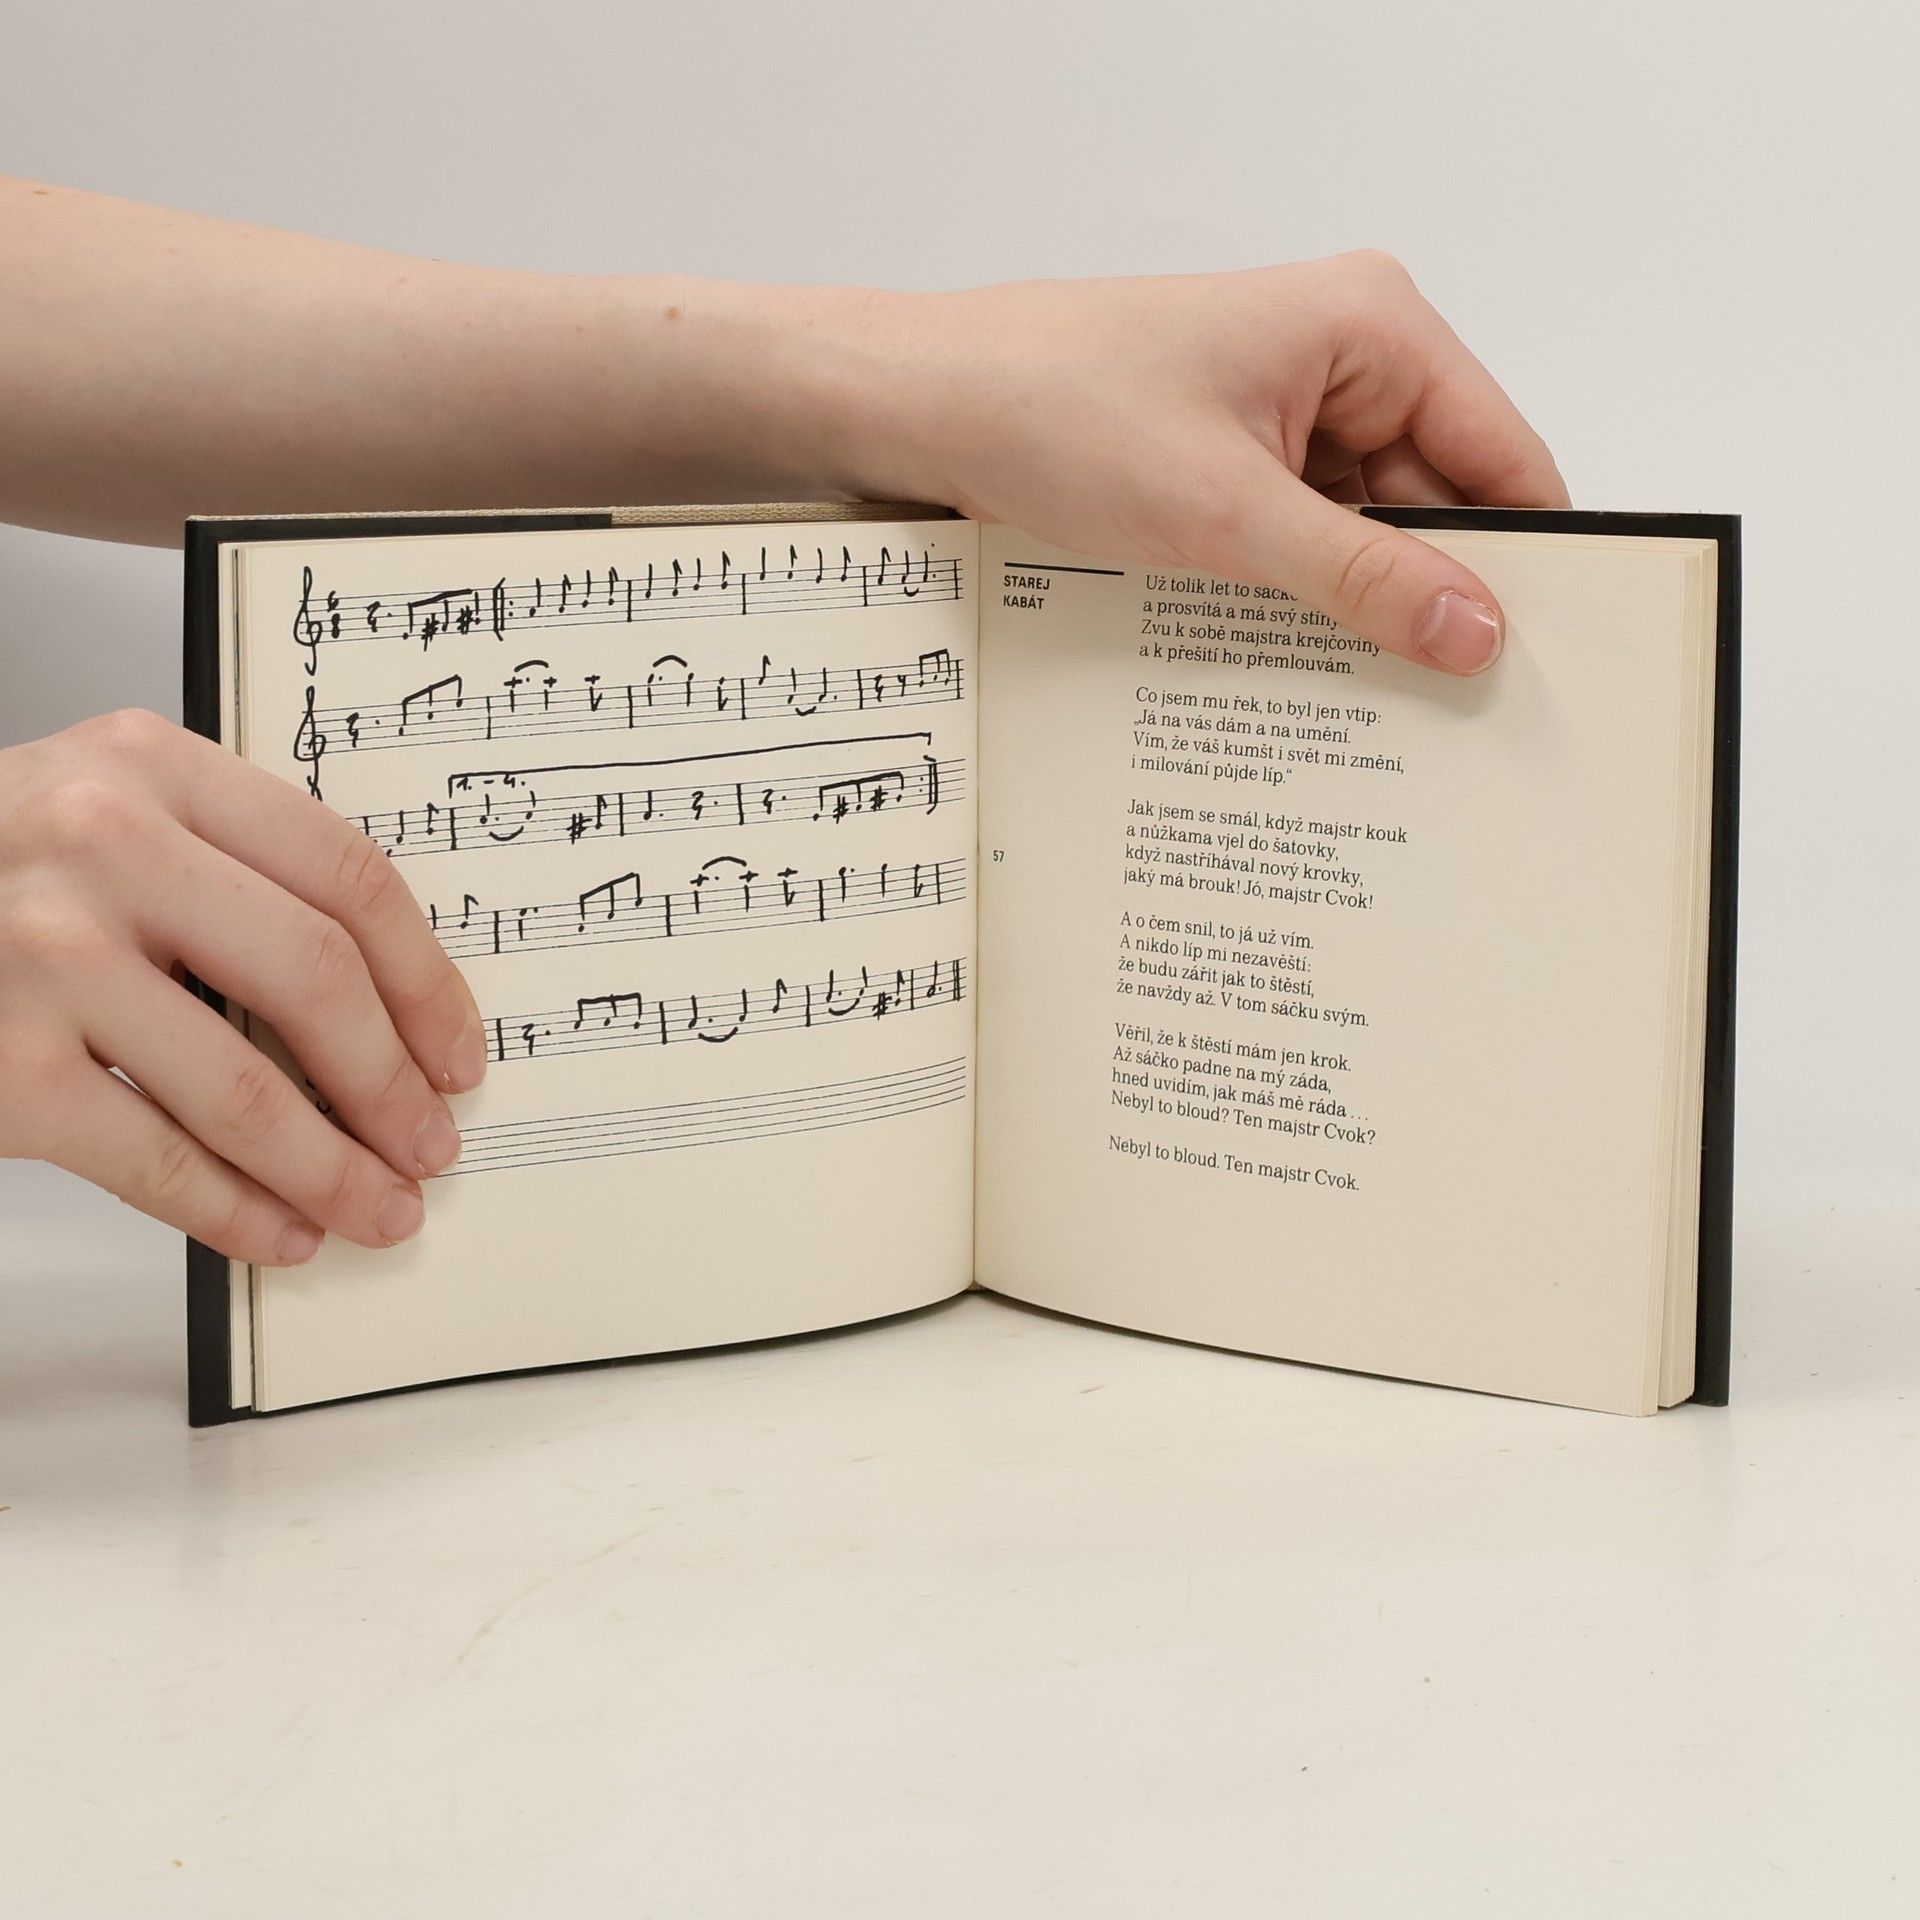 1. – 4.
STAREJ
KABÁT
57
Už tolik let to
a prosvítá a má svý
Zvu k sobě majstra krejčoviny
a k přešití ho přemlouvám.
Co jsem mu řek, to byl jen vtip:
„Já na vás dám a na umění.
Vím, že váš kumšt i svět mi změní,
i milování půjde líp.“
Jak jsem se smál, když majstr kouk
a nůžkama vjel do šatovky,
když nastříhával nový krovky,
jaký má brouk! Jó, majstr Cvok!
A o čem snil, to já už vím.
A nikdo líp mi nezavěští:
že budu zářit jak to štěstí,
že navždy až. V tom sáčku svým.
Věřil, že k štěstí mám jen krok.
Až sáčko padne na mý záda,
hned uvidím, jak máš mě ráda . . .
Nebyl to bloud? Ten majstr Cvok?
Nebyl to bloud. Ten majstr Cvok.